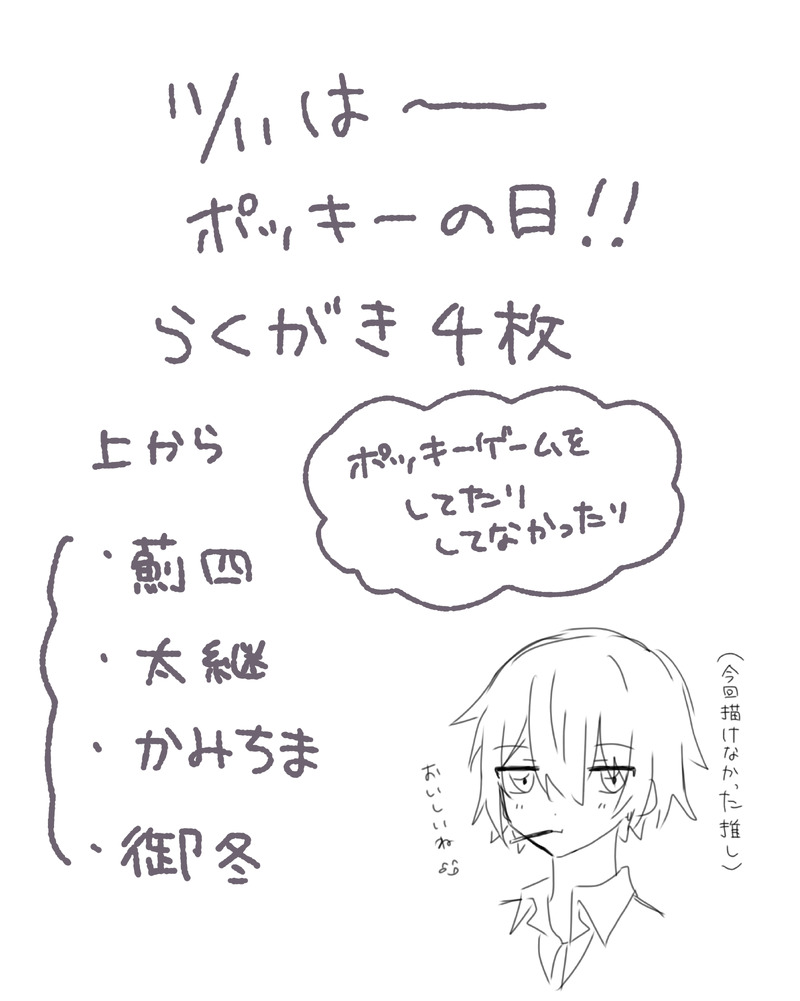 11/11は〜
ポッキーの日!!
らくがき4枚
ポッキーゲームを
してたり
してなかったり
上から
・薊四
・太継
・かみちま
・御冬
おいしいね
(今回描けなかった推し)